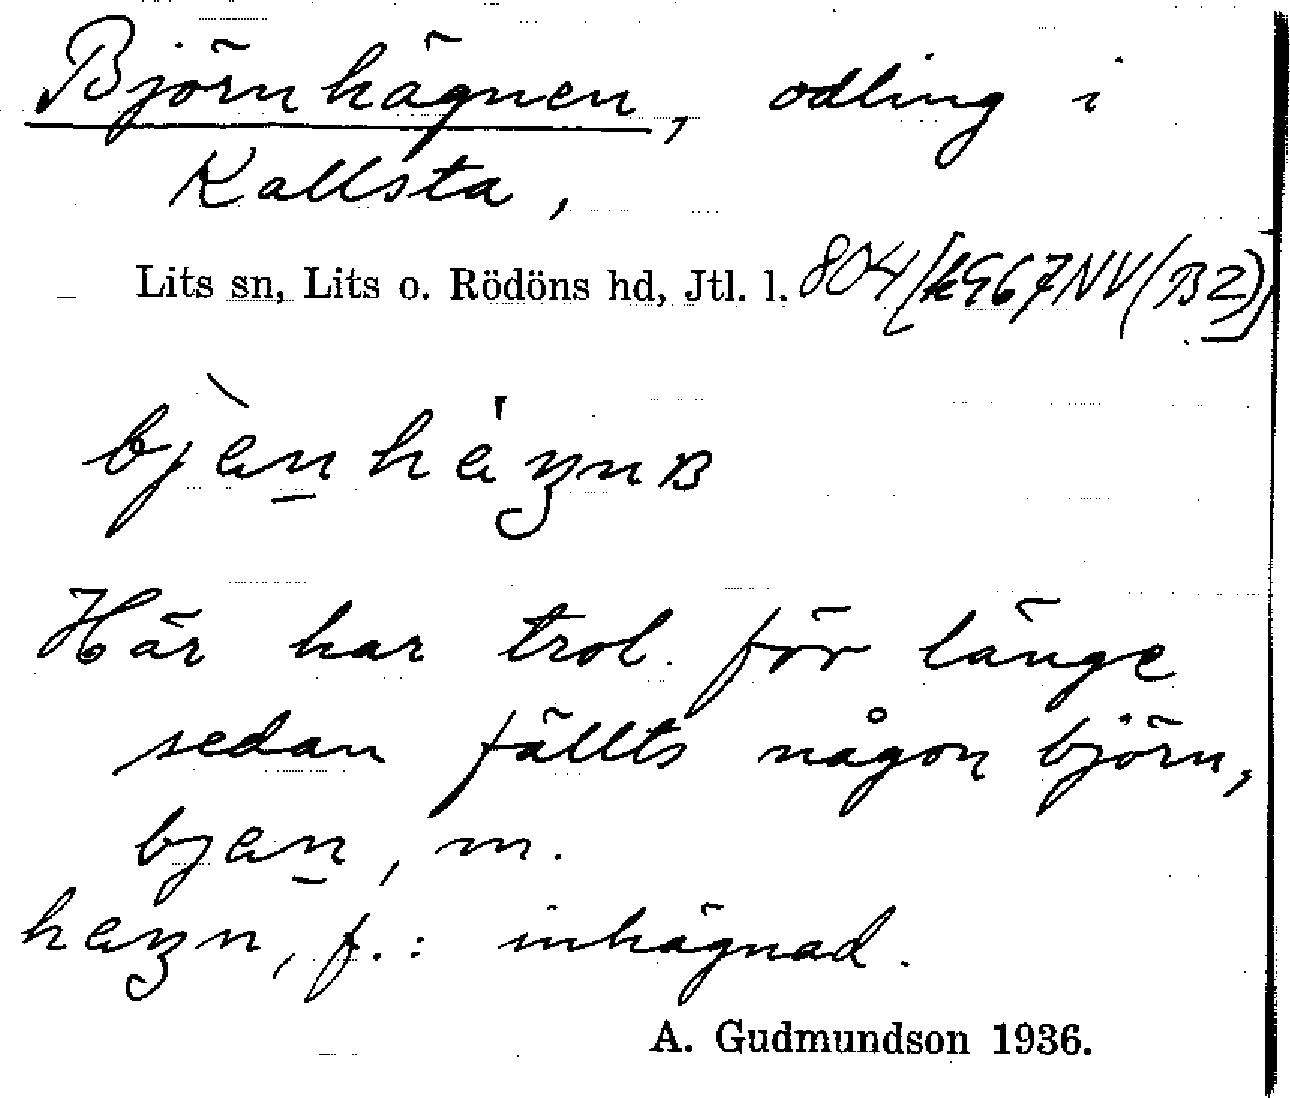 Björnhägnen, odling i
Kallsta,
Lits sn, Lits o. Rödöns hd, Jtl. l.
Här har trol. för länge
sedan fällts någon björn,
bjan, m.
f.: inhägnad.
A. Gudmundson 1936.